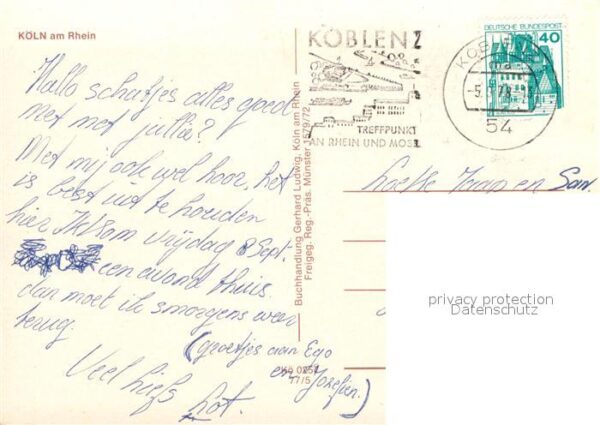 KÖLN am Rhein
Hallo schatjes alles goed
met
Met mij ook wel hoor, het
is best uit te houden
hier. Ik kom vrijdag 8 Sept.
een avond thuis.
dan moet ik smorgens weer
terug.
(groetjes aan Ego
en Jozefien.)
Veel liefs
Lot.
Buchhandlung Gerhard Ludwig, Köln am Rhein
Freigeg. Reg.-Präs. Münster 1579/72
Kö 0257
77/5
KOBLENZ
TREFFPUNKT
AN RHEIN UND MOSEL
54
DEUTSCHE BUNDESPOST
40
Jaap en San
privacy protection
Datenschutz